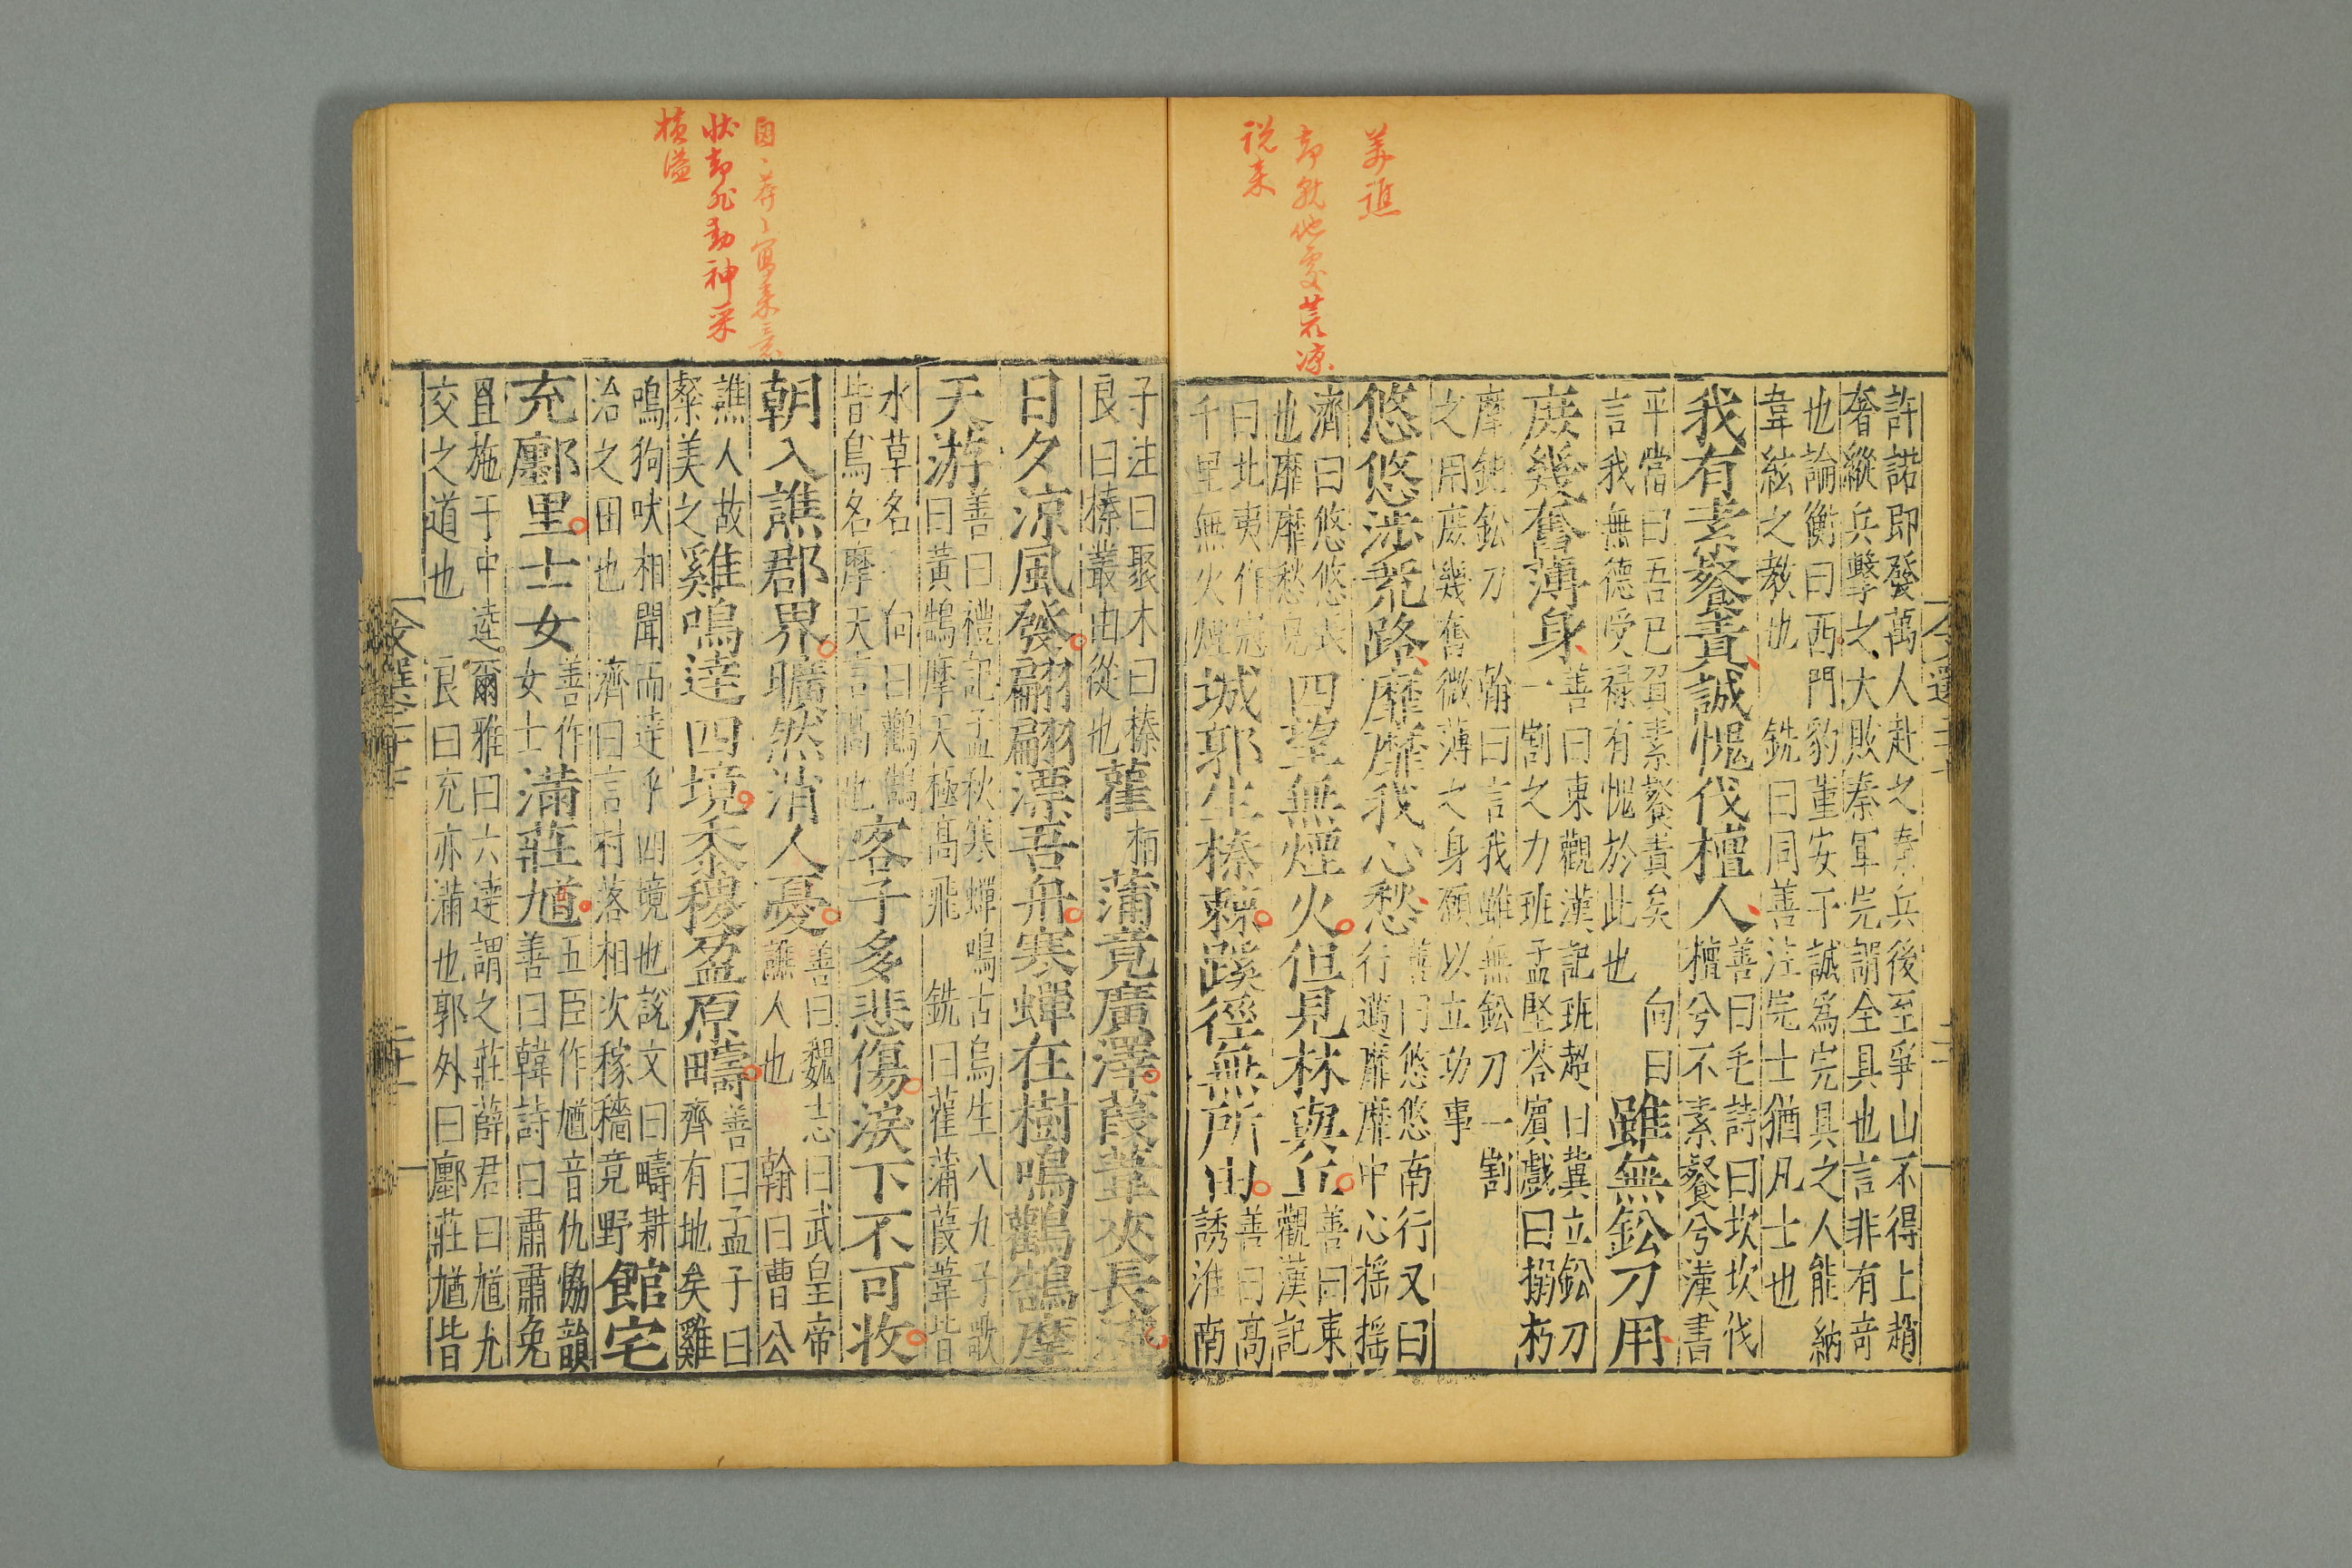 美譙
却就他處荒凉
説来
許諾即發萬人赴之秦兵後至爭山不得上趙
奢縱兵擊之大敗秦軍完謂全具也言非有竒
也論衡曰西門豹董安于誠爲完具之人能納
韋絃之教也 銑曰同善注完士猶凡士也
我有素餐責誠愧伐檀人
善曰毛詩曰坎坎伐
檀兮不素餐兮漢書
平當曰吾已負素餐責矣 向曰
言我無德受禄有愧於此也
雖無鈆刀用
庻幾奮薄身
善曰東觀漢記班超曰冀立鈆刀
一割之力班孟堅荅賔戲曰搦朽
摩鈍鈆刀 翰曰言我雖無鈆刀一割
之用庻幾奮微薄之身願以立功事
悠悠涉荒路靡靡我心愁
善曰悠悠南行又曰
行邁靡靡中心摇摇
濟曰悠悠長
也靡靡愁皃
四望無煙火但見林與丘
善曰東
觀漢記
曰北夷作宼
千里無火煙
城郭生榛棘蹊徑無所由
善曰髙
誘淮南
子注曰聚木曰榛
良曰榛叢由從也
雚
栢
蒲竟廣澤葭葦夾長流
日夕涼風發翩翩漂吾舟寒蟬在樹鳴鸛鵠摩
天游
善曰禮記孟秋寒蟬鳴古烏生八九子歌
曰黃鵠摩天極髙飛 銑曰雚蒲葭葦皆
水草名 向曰鸛鵠
皆鳥名摩天言髙也
客子多悲傷淚下不可收
朝入譙郡界曠然消人憂
善曰魏志曰武皇帝
譙人也 翰曰曹公
譙人故
粲美之
雞鳴達四境黍稷盈原疇
善曰孟子曰
齊有地矣雞
鳴狗吠相聞而達乎四境也説文曰疇耕
治之田也 濟曰言村落相次稼穡竟野
館宅
充鄽里士女
善作
女士
滿莊馗
五臣作馗音仇恊韻
善曰韓詩曰肅肅兔
罝施于中逵爾雅曰六達謂之莊薛君曰馗尤
交之道也 良曰充亦滿也郭外曰鄽莊馗皆
状却飛動神采
横溢